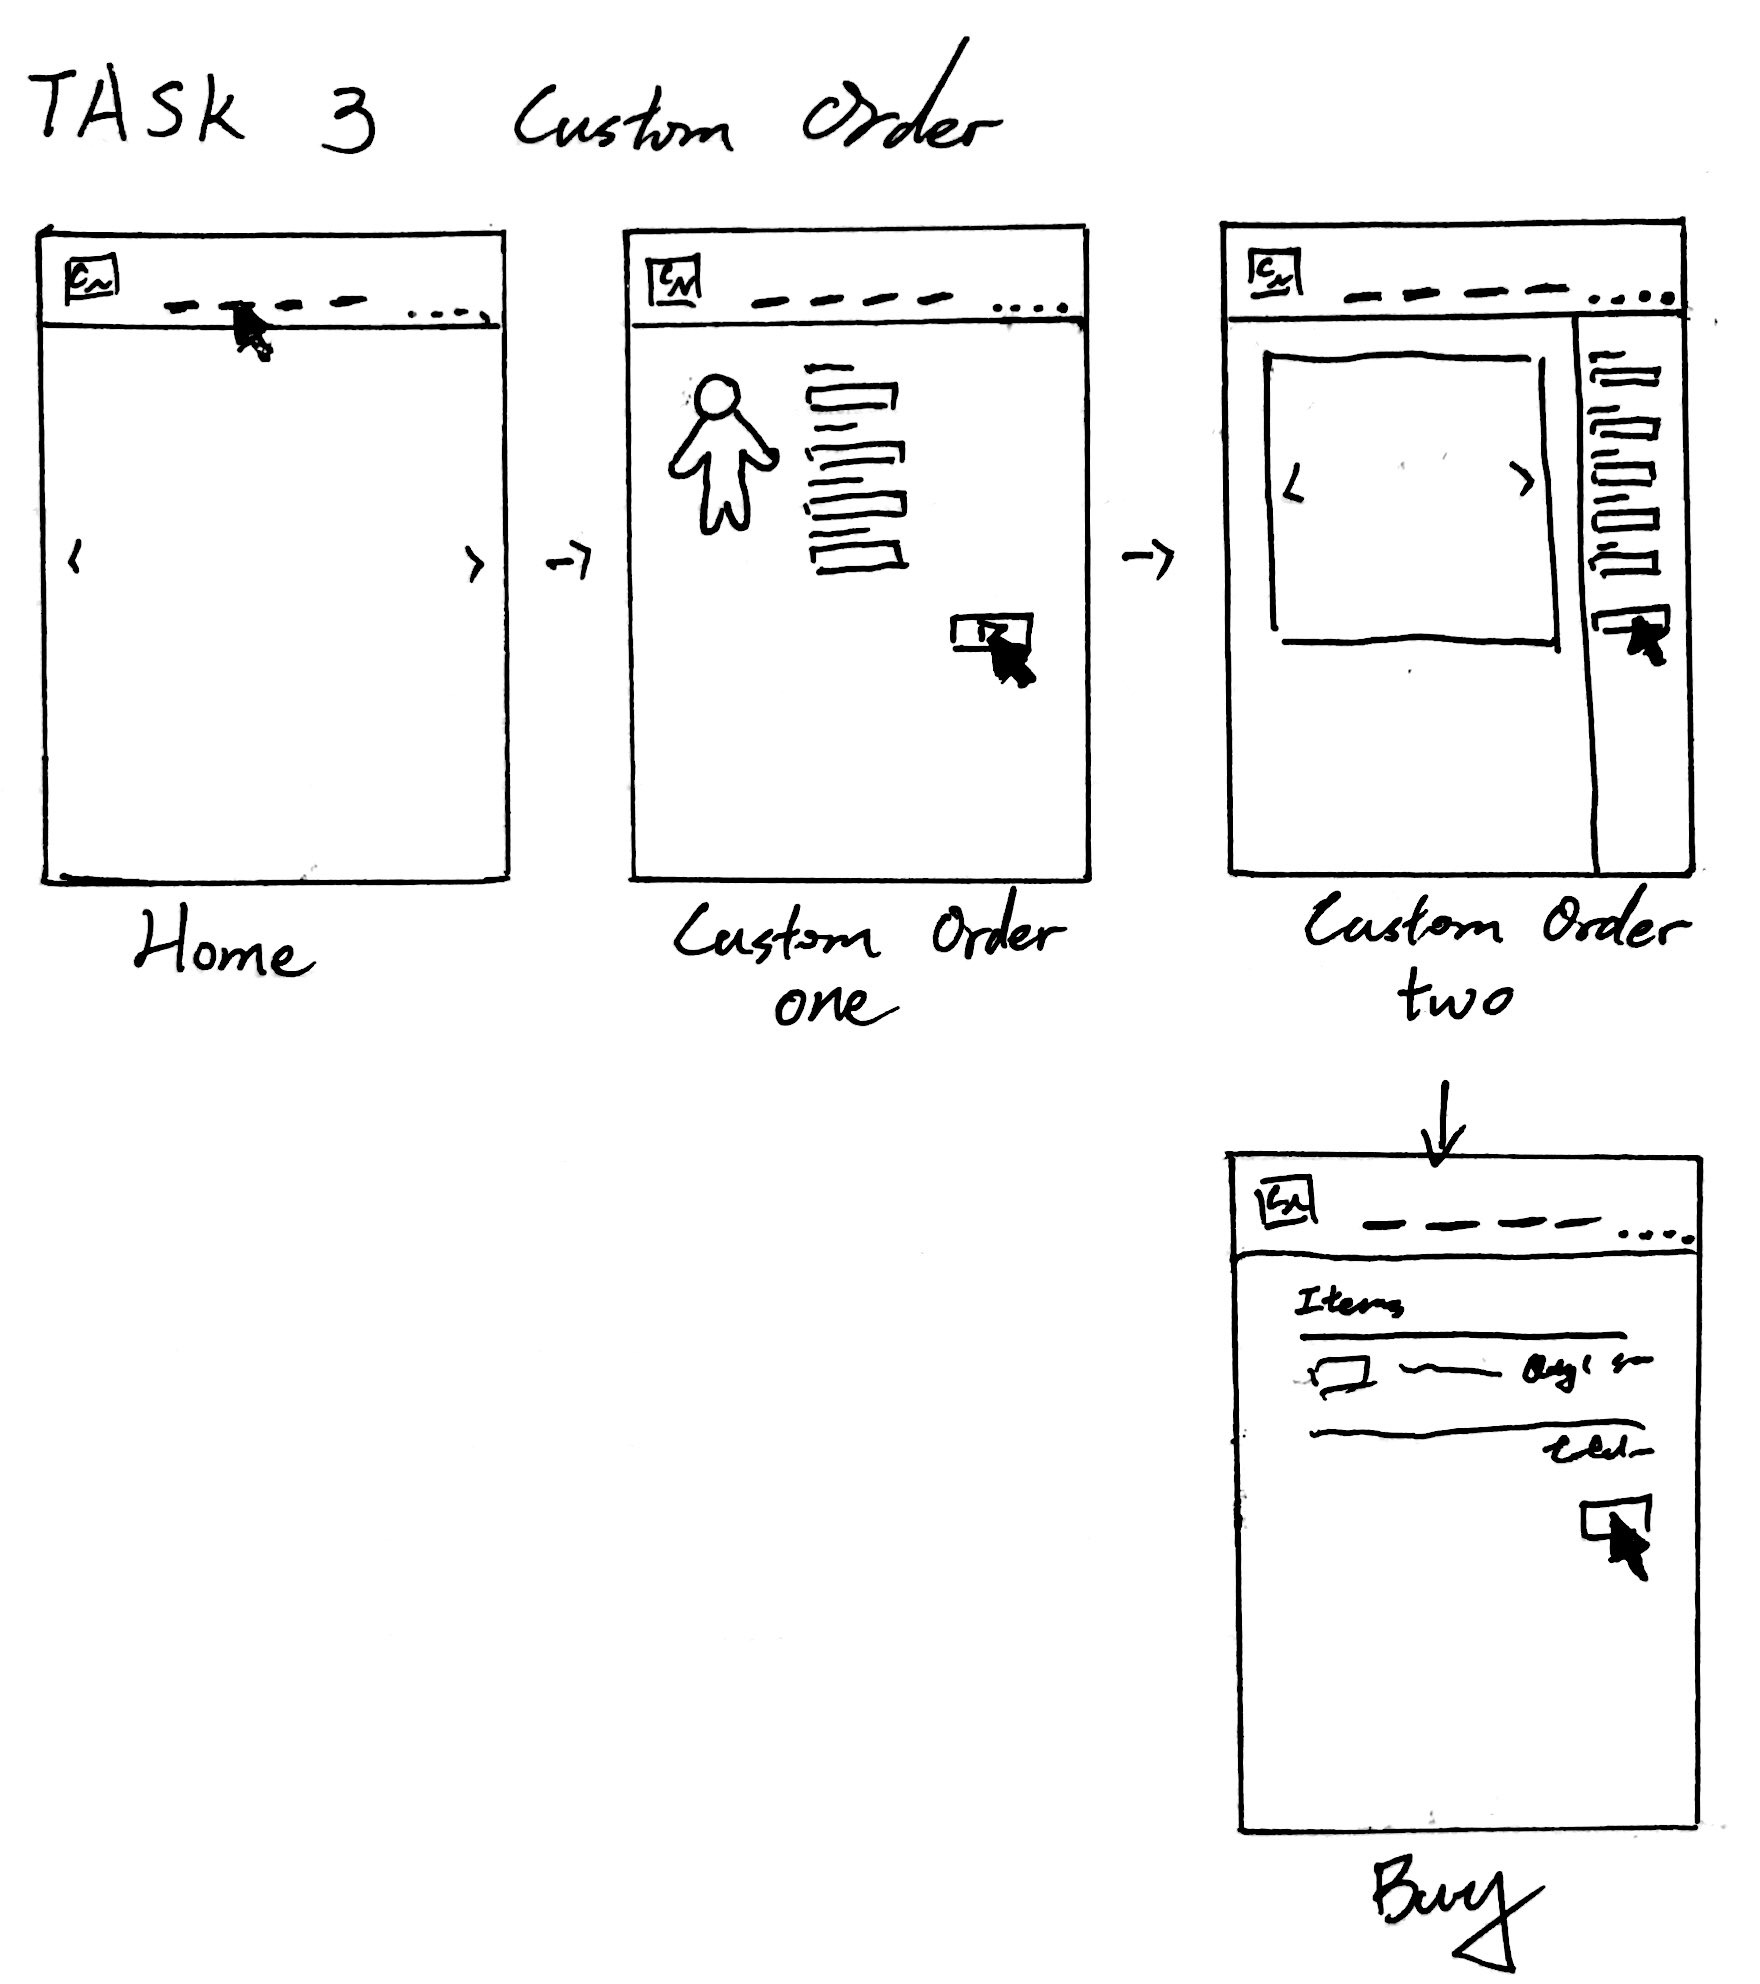 TASK 3 Custom Order
Home
Custom Order
one
Custom Order
two
Items
Buy